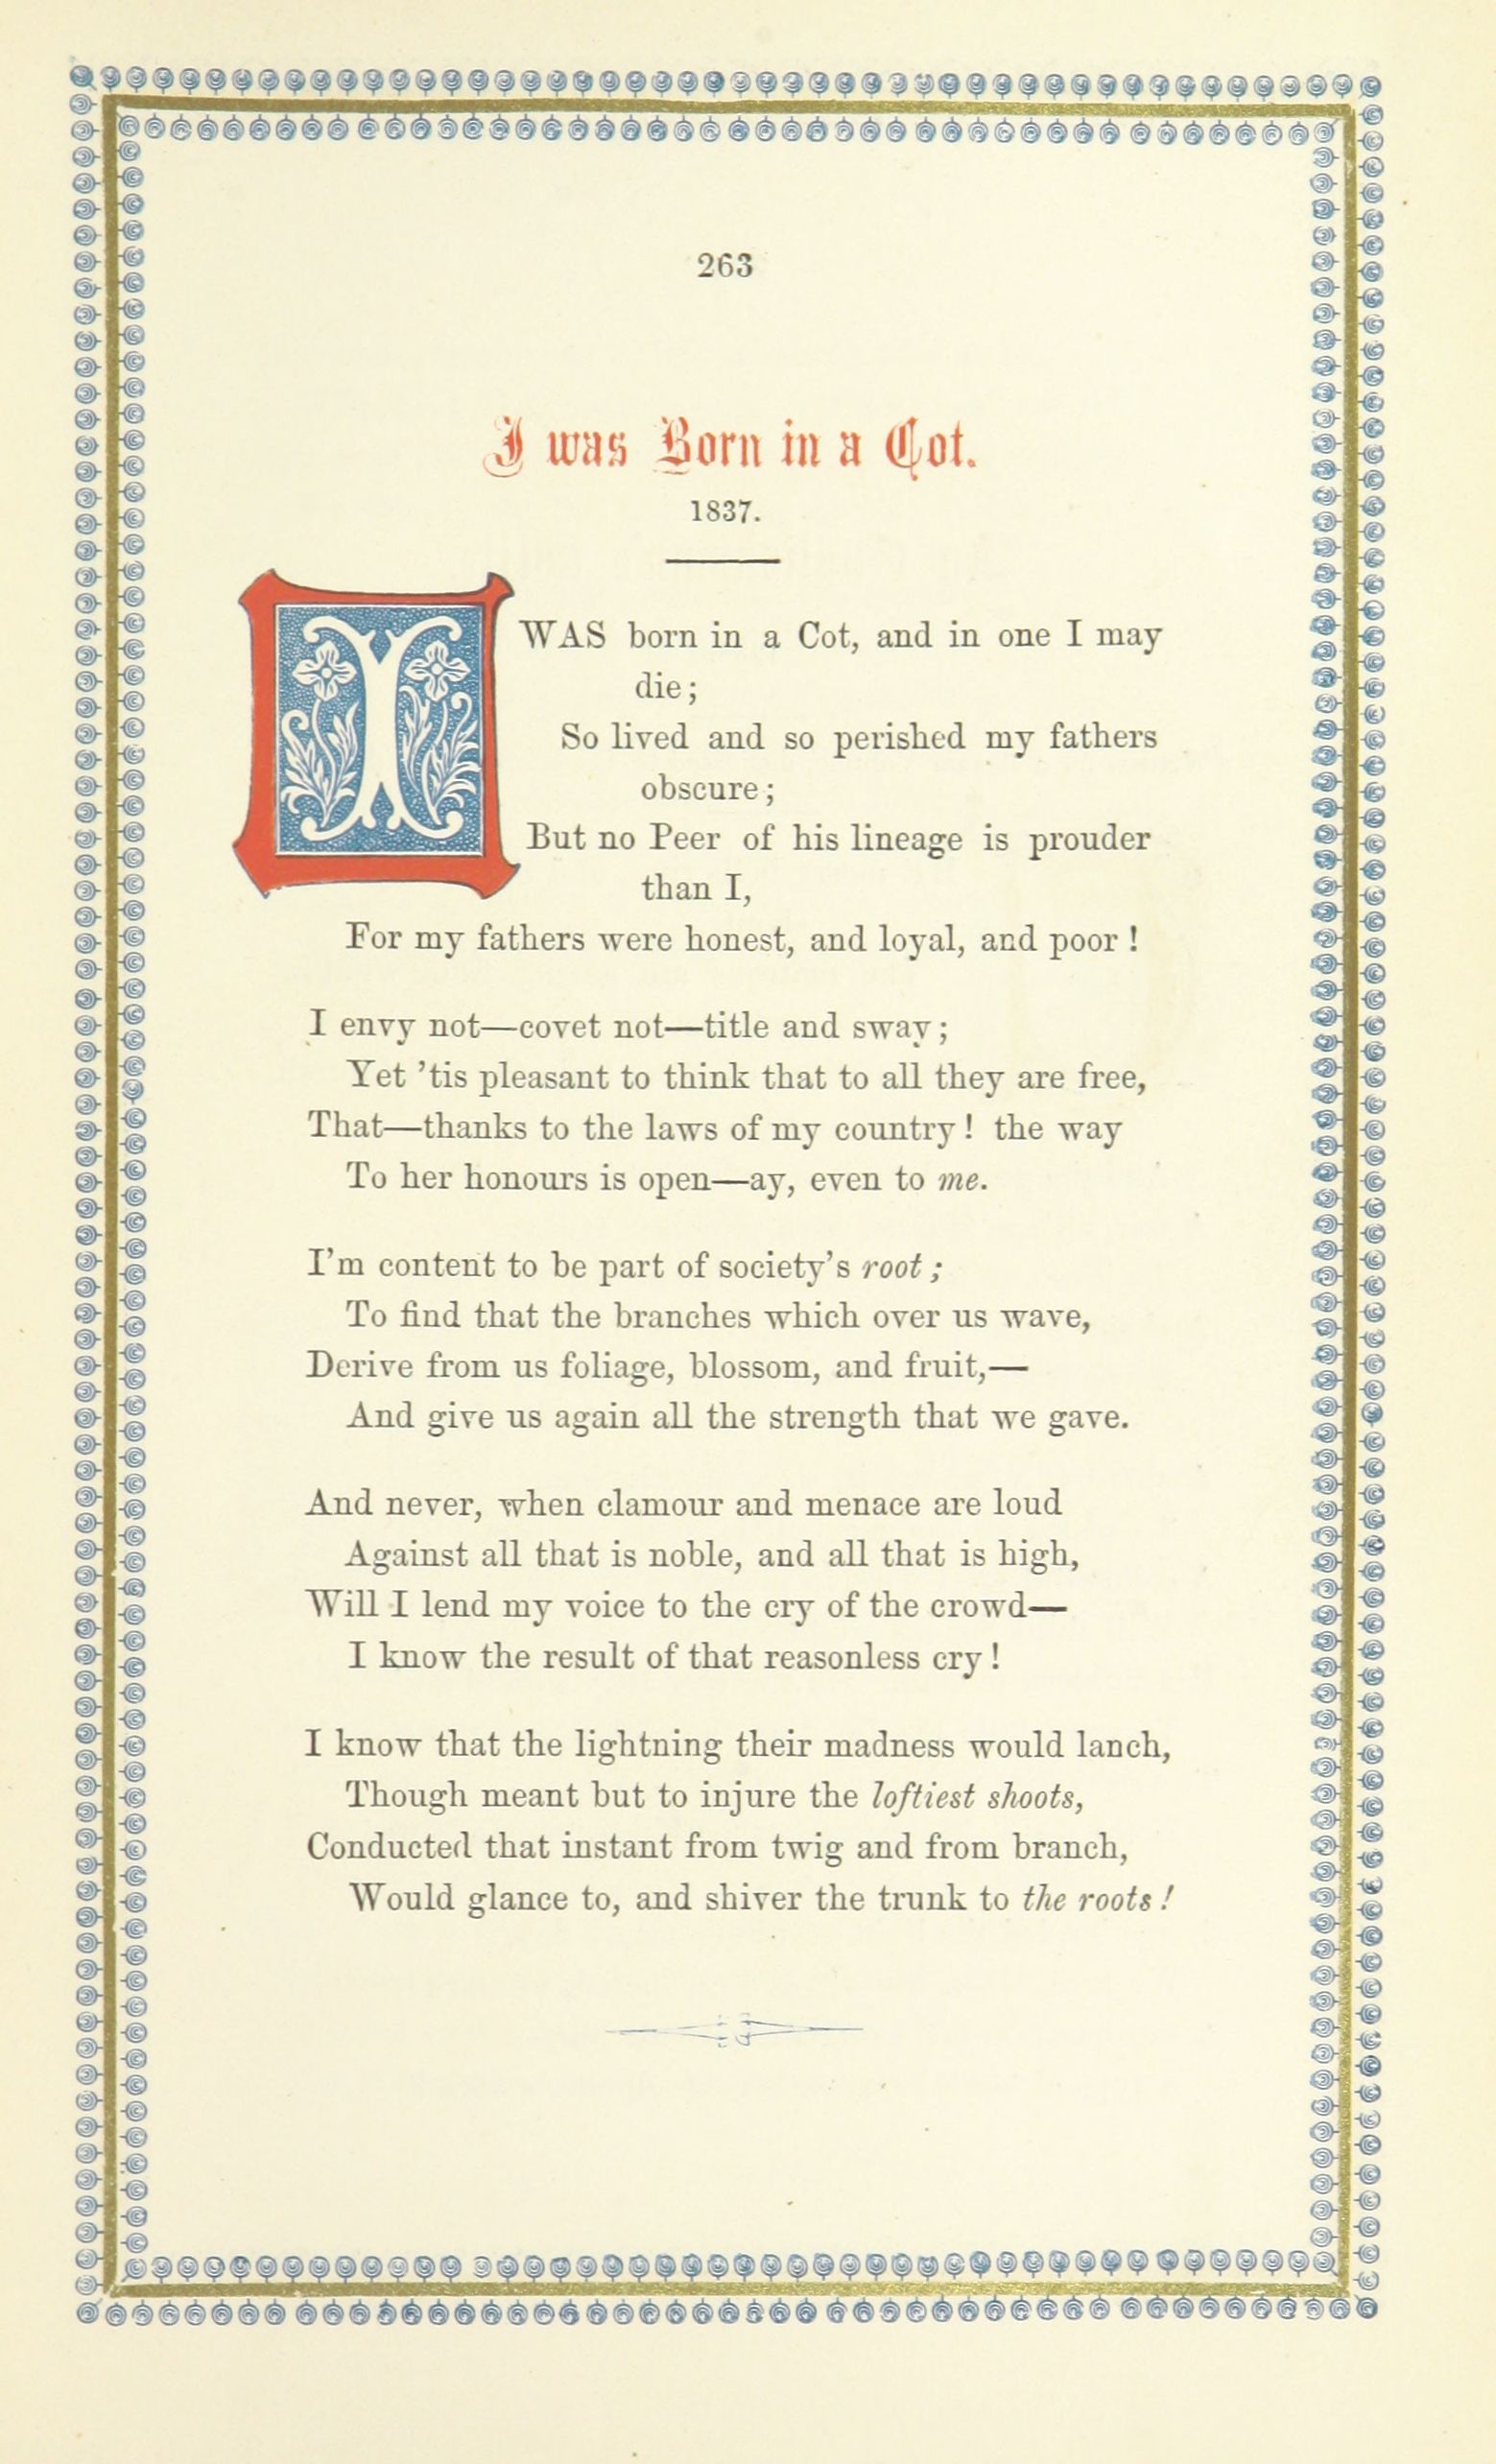 263
I was Born in a Cot.
1837.
I WAS born in a Cot, and in one I may
die;
So lived and so perished my fathers
obscure;
But no Peer of his lineage is prouder
than I,
For my fathers were honest, and loyal, and poor!
I envy not—covet not—title and sway;
Yet 'tis pleasant to think that to all they are free,
That—thanks to the laws of my country! the way
To her honours is open—ay, even to me.
I'm content to be part of society's root;
To find that the branches which over us wave,
Derive from us foliage, blossom, and fruit,—
And give us again all the strength that we gave.
And never, when clamour and menace are loud
Against all that is noble, and all that is high,
Will I lend my voice to the cry of the crowd—
I know the result of that reasonless cry!
I know that the lightning their madness would lanch,
Though meant but to injure the loftiest shoots,
Conducted that instant from twig and from branch,
Would glance to, and shiver the trunk to the roots!